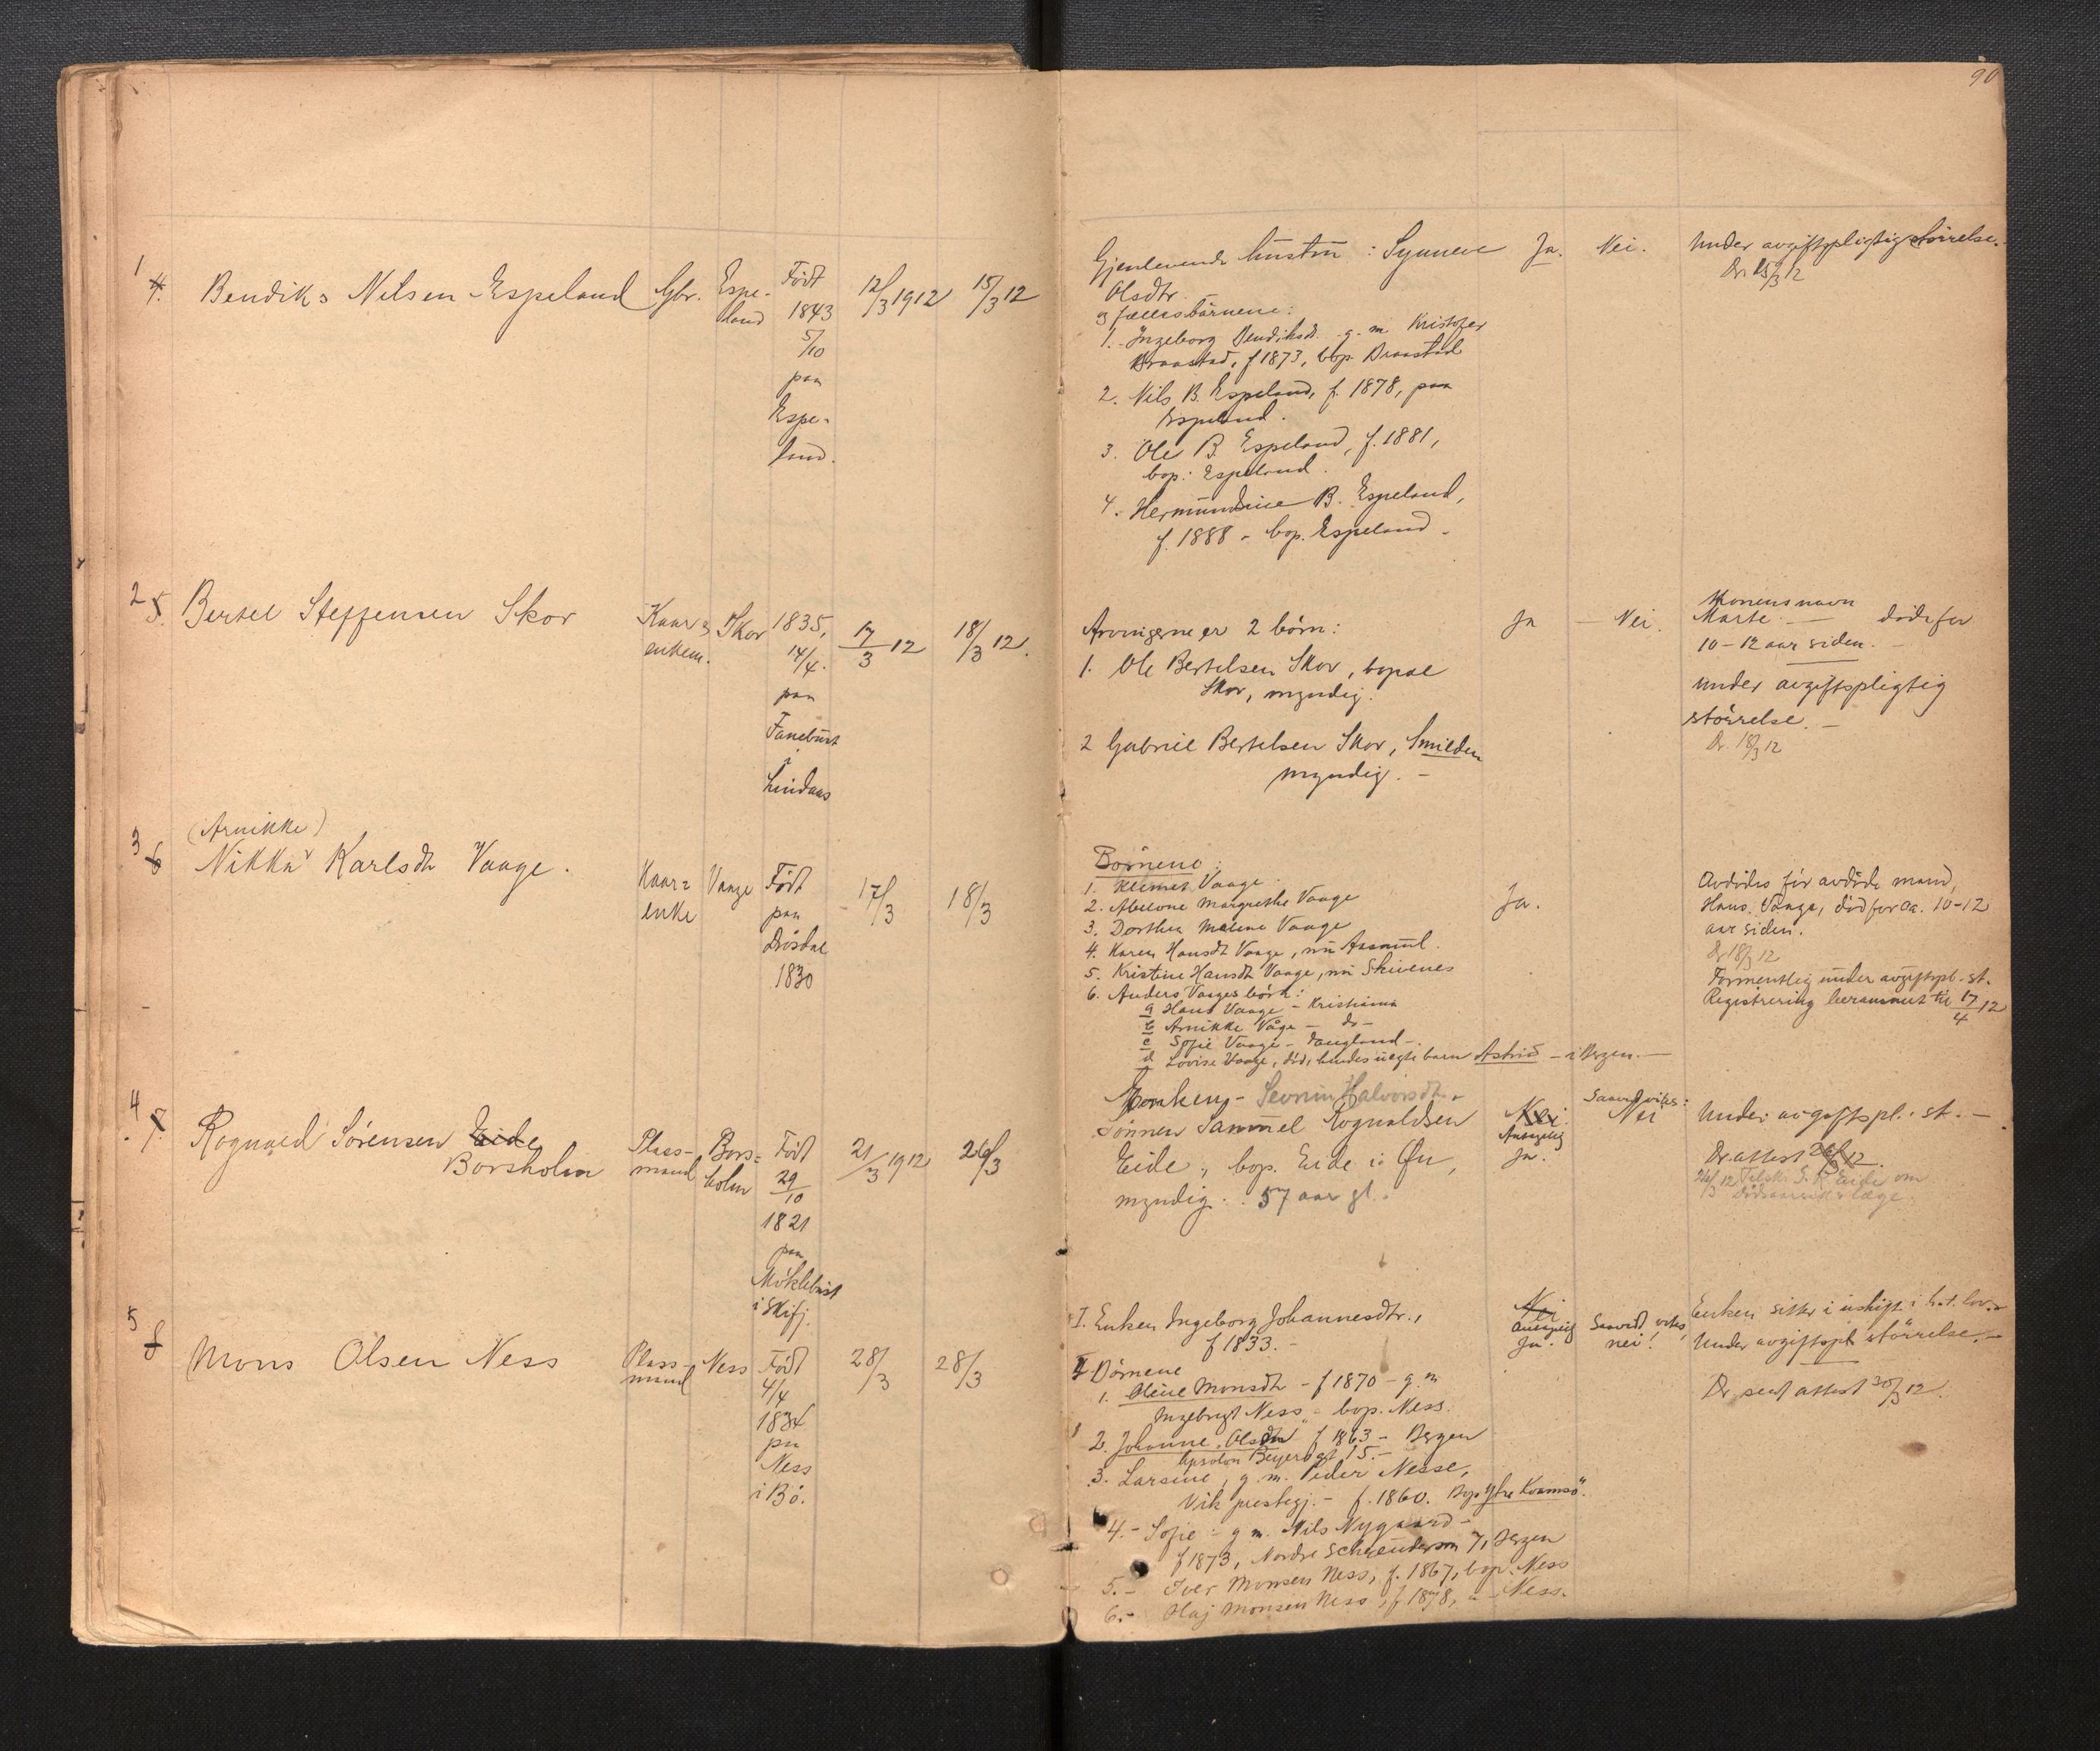 90
1
4. Bendiks Nilsen Espeland Gbr. Espe-
land
Født
1843
5/10
paa
Espe-
land.
12/3 1912 15/3 12
Gjenlevende hustru: Synneve
Olsdtr.
og fællesbørnene:
1. Ingeborg Bendiksdt. g. m. Kristofer
Braastad, f 1873, bop. Braastad
2. Nils B. Espeland, f. 1878, paa
Espeland.
3. Ole B. Espeland, f. 1881,
bop: Espeland.
4. Hermundine B. Espeland,
f. 1888 - bop. Espeland -
Ja. Nei. Under avgiftspligtig størrelse.
Dr. 15/3 12
2
5. Bertel Steffensen Skor Kaar=
enkem. Skor 1835,
14/4.
paa
Fanebust
i
Lindaas
17/3 12 18/3 12.
Arvingerne er 2 børn:
1. Ole Bertelsen Skor, bopæl
Skor, myndig.
2 Gabriel Bertelsen Skor, Smilden
myndig. -
Ja - Nei. Konens navn
Marte - døde for
10-12 aar siden. -
Under avgiftspligtig
størrelse. -
Dr. 18/3 12
(Arnikke)
3
6 Nikka Karlsdtr Vaage. Kaar=
enke Vaage Født
paa
Døsdal
1830
17/3 18/3
Børnene:
1. Klemet Vaage.
2. Abelone Margrethe Vaage
3. Dorthea Malene Vaage
4. Karen Hansdt Vaage, nu Aasmul.
5. Kristine Hansdt Vaage, nu Skivenes
6. Anders Vaages børn:
a Hans Vaage - Kristiania
b Arnikke Våge - do -
c Sofie Vaage - Daugland -.
d Lovise Vaage, død, hendes uegte barn Astrid - i Bergen. -
Ja. Avdødes før avdøde mand,
Hans Vaage, død for ca. 10-12
aar siden.
Dr 18/3 12
Formentlig under avgiftspl. st.
Registrering berammet til 17/4 12
4
7. Rognald Sørensen Eide
Borsholm Plass-
mand Bors=
holm Født
29/10
1821
paa
Møklebust
i Skifj.
21/3 1912 26/3
Enken - Sevrin Halvorsdtr.
Sønnen Samuel Rognaldsen
Eide, bop. Eide i Øn,
myndig.. 57 aar gl.
Nei.
Antagelig
Ja. Saavidt vites:
Nei Under avgiftspl. st. -
Dr. attest 26/3 12.
26/3 12 Tilsk. S. R. Eide om
dødsaarsak & læge
5
8 Mons Olsen Ness Plass-
mand Ness Født
4/4
1834
paa
Ness
i Bø.
28/3 28/3
I. Enken Ingeborg Johannesdtr.,
f 1833. -
II Børnene
1. Oline Monsdtr - f 1870 - g. m
Ingebrigt Ness, bop. Ness.
2. Johanne Olsdtr f 1863 - Bergen
Absalon Beyersgt 15. -
3. Larsine, g. m. Peder Nesse,
Vik prestegj. - f. 1860. Bop Ytre Kvamsø.
4. - Sofie - g m. Nils Nygaard -
f 1873, Nordre 7, Bergen
5. - Iver Monsen Ness, f. 1867, bop. Ness
6. - Haj Monsen Ness, f 1878, " - Ness.
Nei
Antagelig
Ja. Saavidt vites,
nei! Enken sitter i uskiftet i h.t. lov. -
Under avgiftspl. størrelse. -
Dr sent attest 30/3 12.